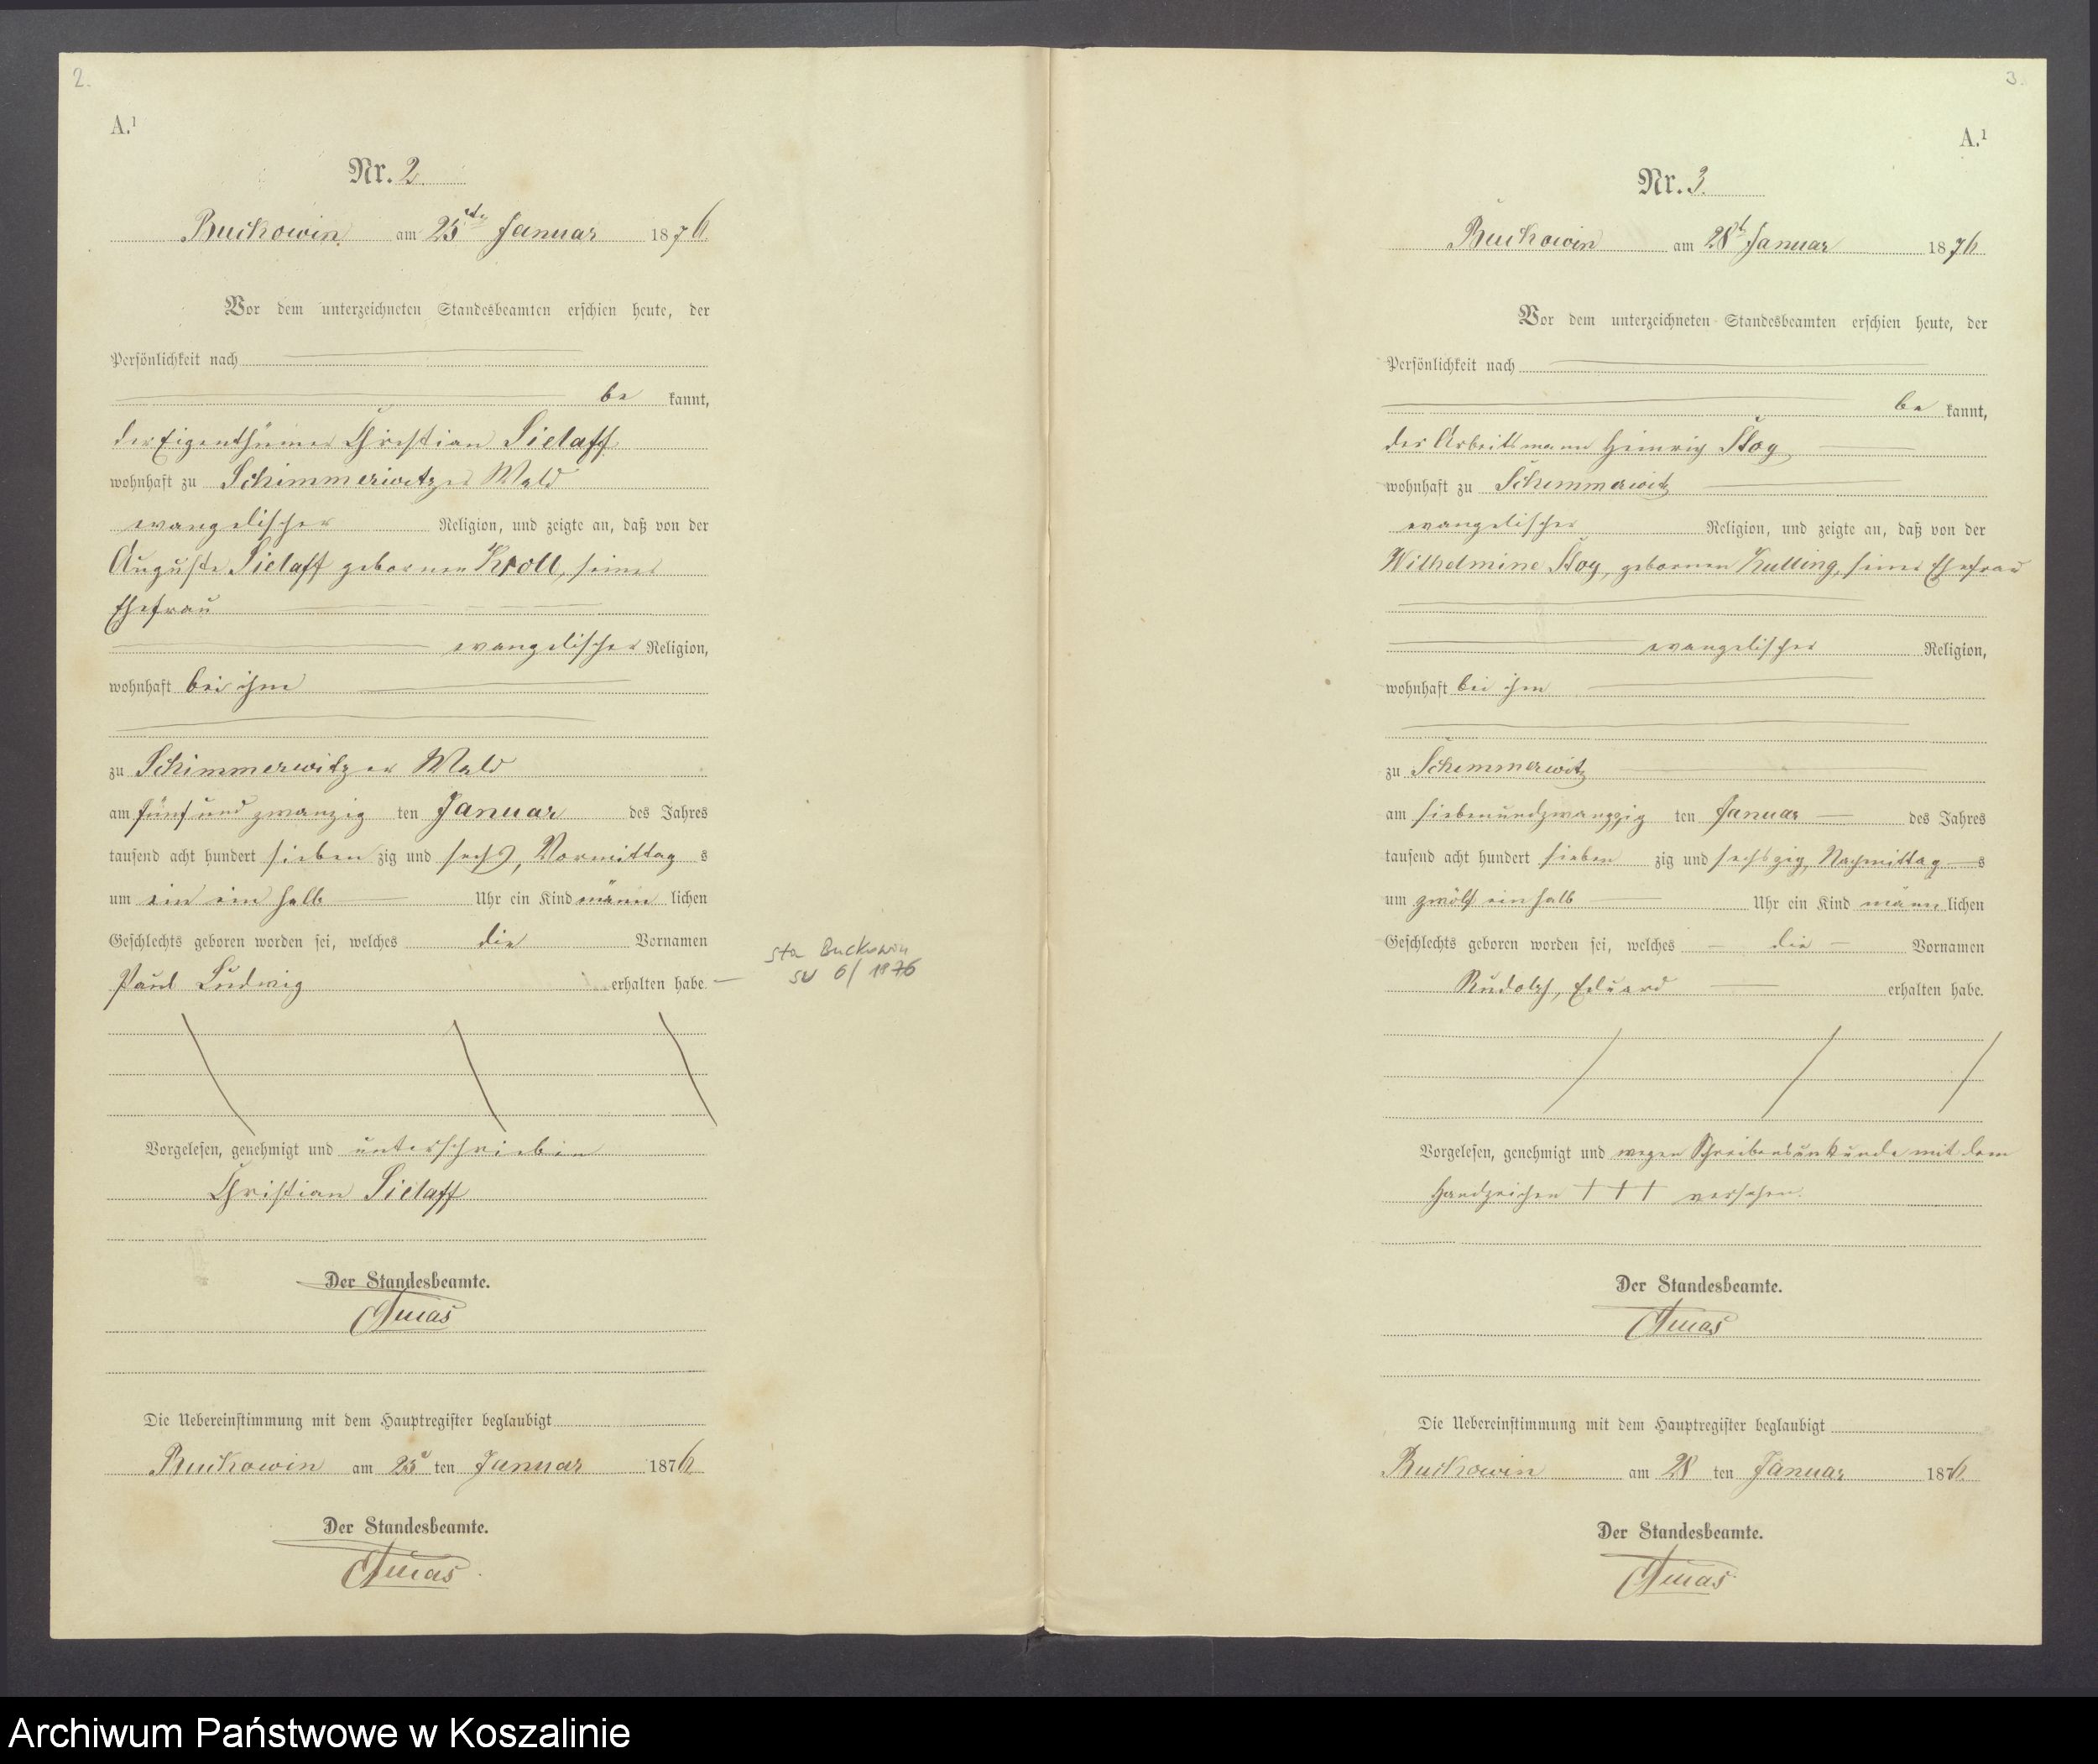 2.
A.¹
Nr. 2
Buckowin am 25ten Januar 1876
Vor dem unterzeichneten Standesbeamten erschien heute, der
Persönlichkeit nach
be kannt,
der Eigenthümer Christian Sielaff
wohnhaft zu Schimmerwitzer Wald
evangelischer Religion, und zeigte an, daß von der
Auguste Sielaff gebornen Kroll, seiner
Ehefrau
evangelischer Religion,
wohnhaft bei ihm
zu Schimmerwitzer Wald
am fünf und zwanzig ten Januar des Jahres
tausend acht hundert sieben zig und sechs, Vormittag s
um ein ein halb Uhr ein Kind männ lichen
Geschlechts geboren worden sei, welches die Vornamen
Paul Ludwig erhalten habe
Sta Buckowin
SU 6/1876
Vorgelesen, genehmigt und unterschrieben
Christian Sielaff
Der Standesbeamte.
Die Uebereinstimmung mit dem Hauptregister beglaubigt
Buckowin am 25 ten Januar 1876
Der Standesbeamte.
3.
A.¹
Nr. 3.
Buckowin am 28t Januar 1876
Vor dem unterzeichneten Standesbeamten erschien heute, der
Persönlichkeit nach
be kannt,
der Arbeitsmann Heinrich Stog
wohnhaft zu Schimmerwitz
evangelischer Religion, und zeigte an, daß von der
Wilhelmine Stog, gebornen Kulling, seiner Ehefrau
evangelischer Religion,
wohnhaft bei ihm
zu Schimmerwitz
am siebenundzwanzig ten Januar des Jahres
tausend acht hundert sieben zig und sechszig, Nachmittag s
um zwölf einhalb Uhr ein Kind männ lichen
Geschlechts geboren worden sei, welches die Vornamen
Rudolf, Eduard erhalten habe.
Vorgelesen, genehmigt und wegen Schreibensunkunde mit dem
Handzeichen +++ versehen.
Der Standesbeamte.
Die Uebereinstimmung mit dem Hauptregister beglaubigt
Buckowin am 28 ten Januar 1876
Der Standesbeamte.
Archiwum Państwowe w Koszalinie